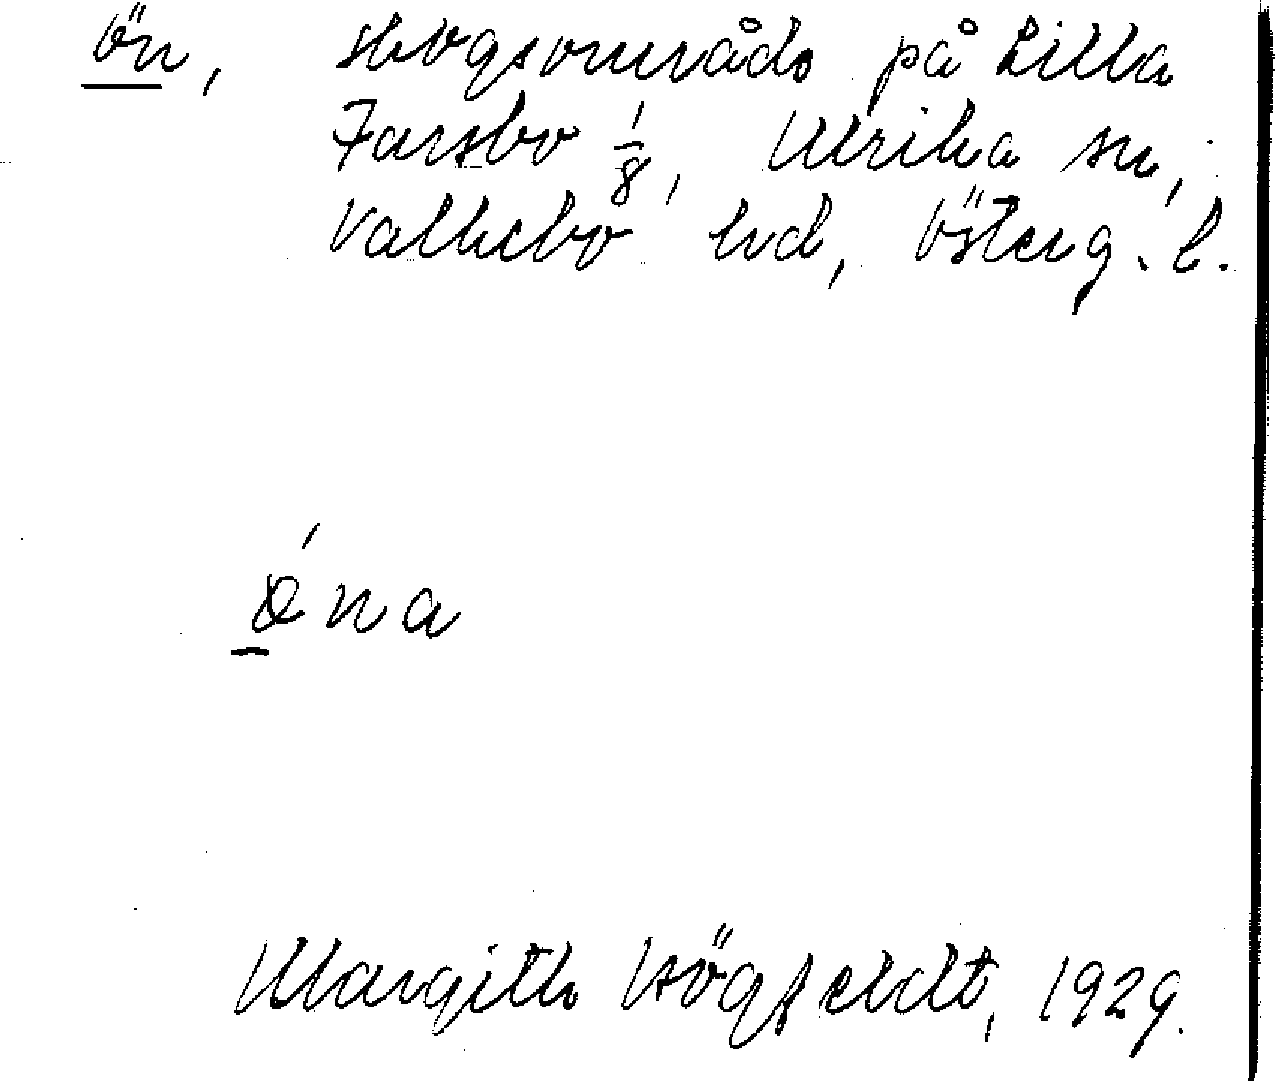 Ön, skogsområde på Lilla
Farsbo 1/8, Ulrika sn,
Valkebo hd, Österg. l.
ǿna
Margith Högfeldt, 1929.